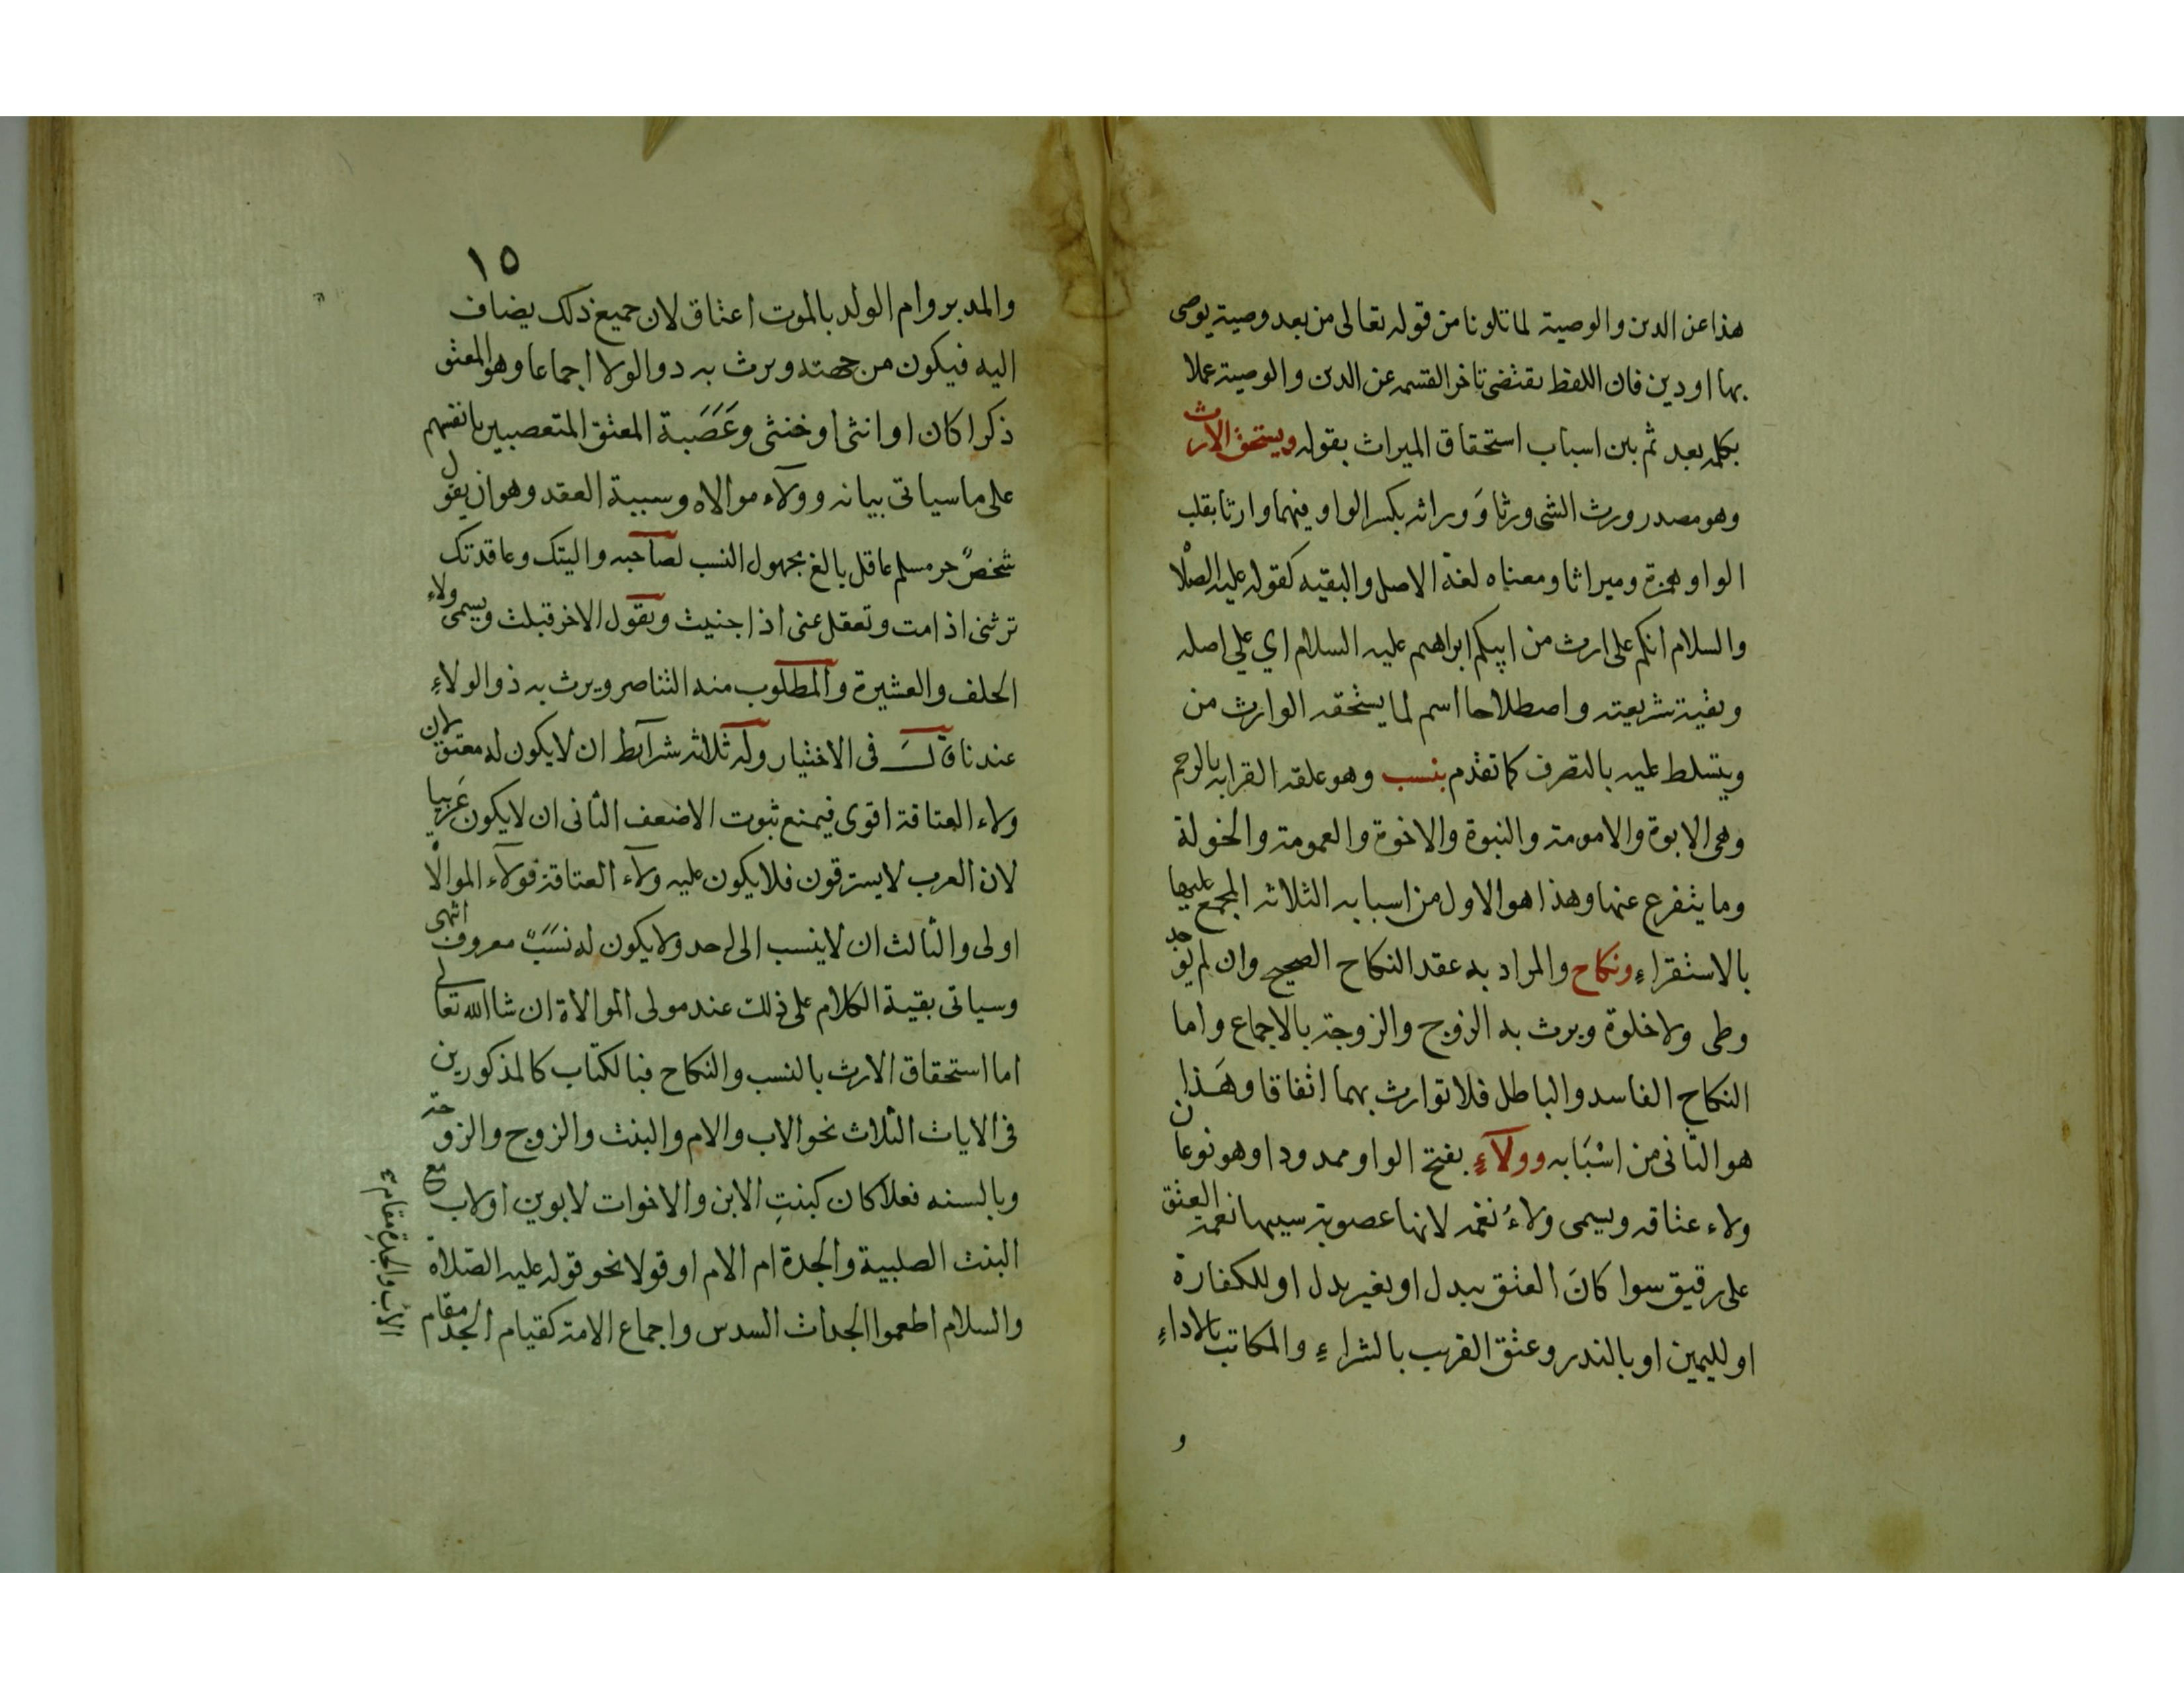 هذا عن الدين والوصية لما تلونا من قوله تعالى من بعد وصية يوصى
بها او دين فان اللفظ يقتضى تاخر القسمه عن الدين والوصية عملا
بكلمه بعد ثم بين اسباب استحقاق الميراث بقوله ويستحق الارث
وهو مصدر ورث الشى ورثا وَ وراثه بكسر الواو فيهما وارثا بقلب
الواو همزة وميراثا ومعناه لغة الاصل والبقيه كقوله عليه الصلاة
والسلام انكم على ارث من ابيكم ابراهيم عليه السلام اي على اصله
وبقية شريعته واصطلاحا اسم لما يستحقه الوارث من
ويتسلط عليه بالتصرف كما تقدم بنسب وهو علقه القرابه بالرحم
وهى الابوة والامومة والبنوة والاخوة والعمومة والخولة
وما يتفرع عنها وهذا هو الاول من اسبابه الثلاثه المجمع عليها
بالاستقراءِ ونكاح والمراد به عقد النكاح الصحيح وان لم يوجد
وطى ولا خلوة ويرث به الزوج والزوجة بالاجماع واما
النكاح الفاسد والباطل فلا توارث بهما اتفاقا وهَذا
هو الثانى من اسْبَابه وولآءٍ بفتح الواو ممدودا وهو نوعان
ولاء عتاقه ويسمى ولاءُ نعمه لانها عصوبة سببها نعمة العتق
على رقيق سوا كانَ العتق ببدل او بغير بدل او للكفارة
او لليمين او بالنذر وعتق القريب بالشراءِ والمكاتب بالاداءِ
و
١٥
والمدبر وام الولد بالموت اعتاق لان جميع ذلك يضاف
اليه فيكون من جهته ويرث به ذوالولا اجماعا وهو المعتق
ذكرا كان او انثى او خنثى وعَصَبة المعتق المتعصبين بانفسهم
على ما سياتى بيانه وولآء موالاه وسببية العقد وهو ان يقول
شخصٌ حر مسلم عاقل بالغ مجهول النسب لصاحبه واليتك وعاقدتك
ترثنى اذا مت وتعقل عنى اذا جنيت ويقول الاخر قبلت ويسمى ولاء
الحلف والعشيرة والمطلوب منه التناصر ويرث به ذوالولاءِ
عندنا قالَ فى الاختيار وله ثلاثه شرآئط ان لا يكون له معتق لان
ولاء العتاقة اقوى فيمنع ثبوت الاضعف الثانى ان لا يكون عَربيا
لان العرب لا يسترقون فلا يكون عليه ولآء العتاقة فولآء الموالاة
اولى والثالث ان لا ينسب الى احد ولا يكون له نسَبٌ معروف انتهى
وسياتى بقية الكلام على ذلك عند مولى الموالاة ان شا الله تعالى
اما استحقاق الارث بالنسب والنكاح فبالكتاب كالمذكورين
فى الايات الثلاث نحو الاب والام والبنت والزوج والزوجة
وبالسنه فعلا كان كبنتِ الابن والاخوات لابوين او لاب مع
البنت الصلبية والجدة ام الام او قولا نحو قوله عليه الصلاة
والسلام اطعموا الجدات السدس واجماع الامة كقيام الجد مقام
الاب والجدةِ مقام